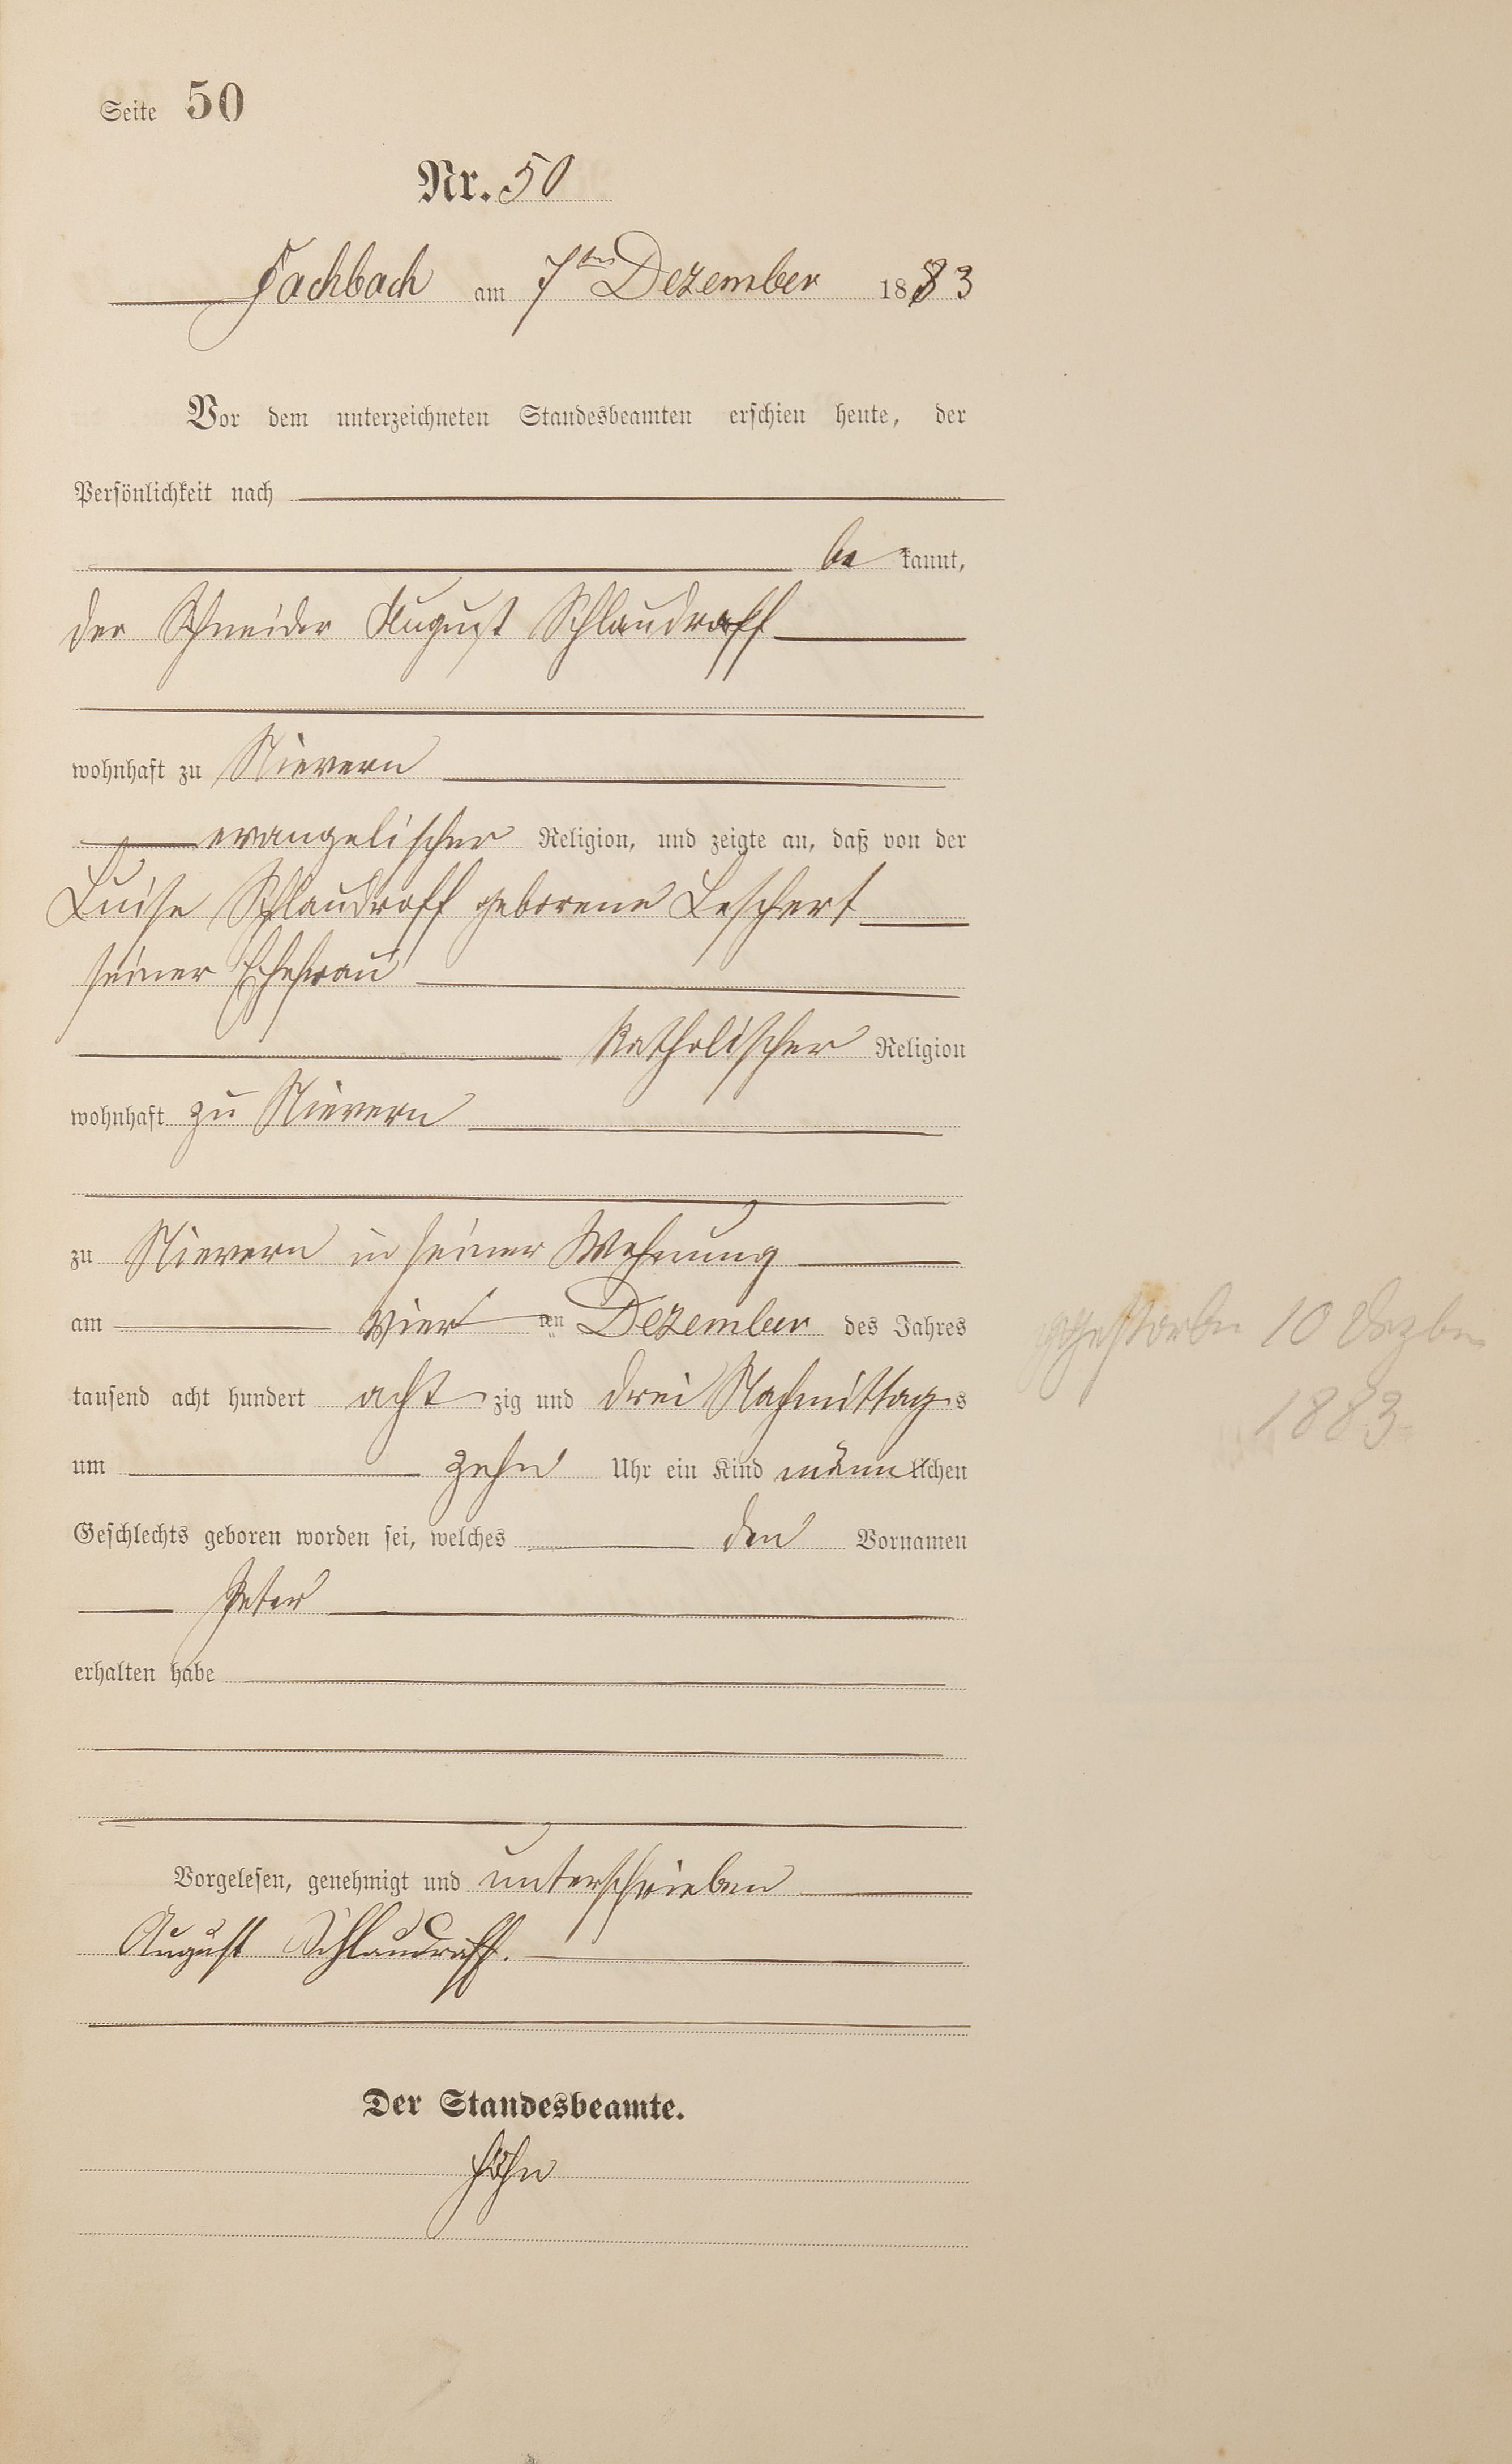 Seite 50
Nr. 50
Fachbach am 7ten Dezember 1883
Vor dem unterzeichneten Standesbeamten erschien heute, der
Persönlichkeit nach
be kannt,
der Schneider August Schlaudraff
wohnhaft zu Nievern
evangelischer Religion, und zeigte an, daß von der
Luise Schlaudraff geborene Leschert
seiner Ehefrau
katholischer Religion
wohnhaft zu Nievern
zu Nievern in seiner Wohnung
am vier ten Dezember des Jahres
tausend acht hundert acht zig und drei Nachmittags
um zehn Uhr ein Kind männlichen
Geschlechts geboren worden sei, welches den Vornamen
Peter
erhalten habe
gestorben 10 Dezbr
1883
Vorgelesen, genehmigt und unterschrieben
August Schlaudraff.
Der Standesbeamte.
Höhn